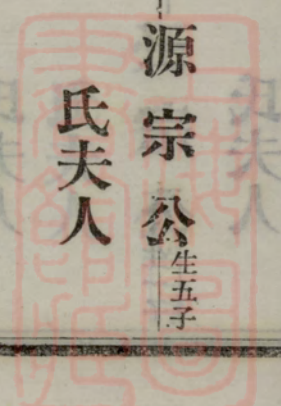 源宗公生五子
氏夫人